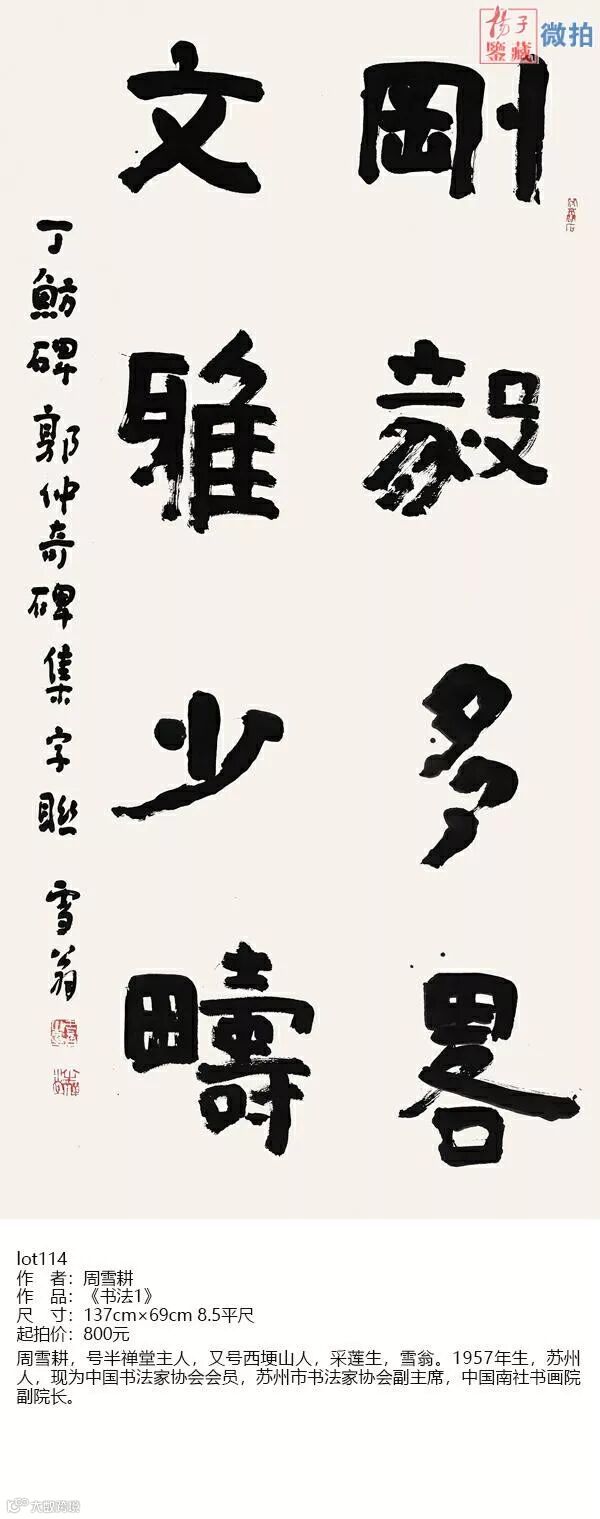 揚子
鑒藏
微拍
剛毅多畧
文雅少疇
丁魴碑郭仲奇碑集字聯 雪翁
lot114
作 者：周雪耕
作 品：《书法1》
尺 寸：137cm×69cm 8.5平尺
起拍价：800元
周雪耕，号半禅堂主人，又号西埂山人，采莲生，雪翁。1957年生，苏州
人，现为中国书法家协会会员，苏州市书法家协会副主席，中国南社书画院
副院长。
大猷跨境